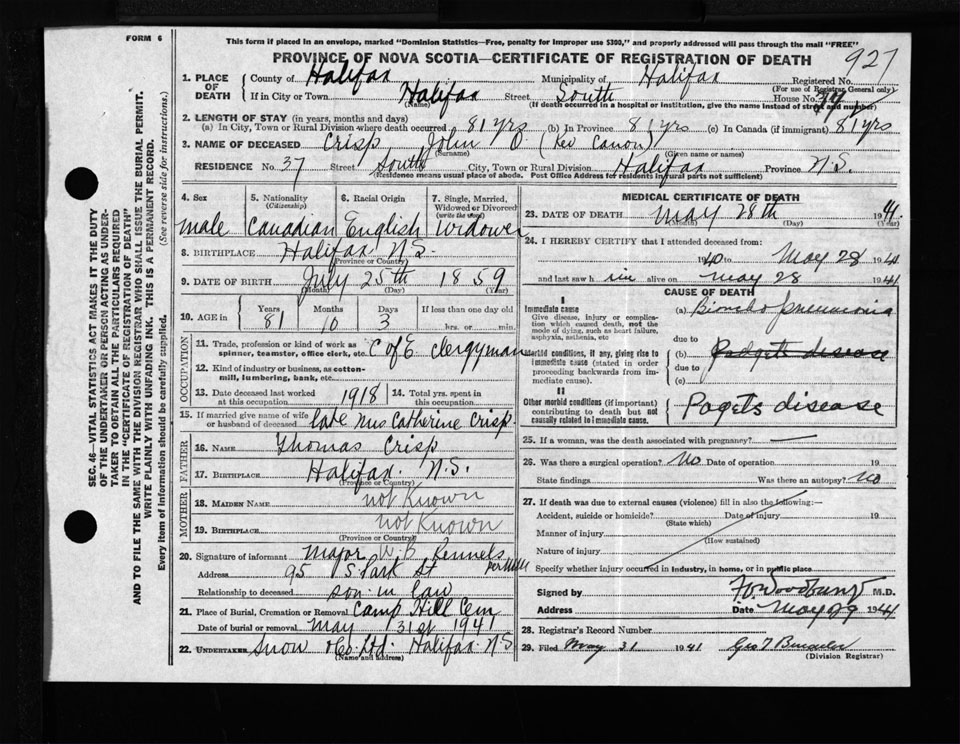 FORM 6
This form if placed in an envelope, marked "Dominion Statistics—Free, penalty for improper use $300," and properly addressed will pass through the mail "FREE"
PROVINCE OF NOVA SCOTIA—CERTIFICATE OF REGISTRATION OF DEATH
927
1. PLACE OF DEATH County of Halifax Municipality of Halifax Registered No.
(For use of Registrar General only)
If in City or Town Halifax Street South House No.
(Name) (If death occurred in a hospital or institution, give the name instead of street and number)
2. LENGTH OF STAY (in years, months and days)
(a) In City, Town or Rural Division where death occurred 81 yrs (b) In Province 81 yrs (c) In Canada (if immigrant) 81 yrs
3. NAME OF DECEASED Crisp John O. (Rev Canon)
(Surname) (Given name or names)
RESIDENCE No. 37 Street South City, Town or Rural Division Halifax Province N.S.
(Residence means usual place of abode. Post Office Address for residents in rural parts not sufficient)
4. Sex 5. Nationality (Citizenship) 6. Racial Origin 7. Single, Married, Widowed or Divorced (write the word)
male Canadian English Widower
8. BIRTHPLACE Halifax N.S.
(Province or Country)
9. DATE OF BIRTH July 25th 1859
(Month) (Day) (Year)
10. AGE in Years Months Days If less than one day old
81 10 3 hrs. or min.
OCCUPATION
11. Trade, profession or kind of work as spinner, teamster, office clerk, etc. C of E. clergyman
12. Kind of industry or business, as cotton-mill, lumbering, bank, etc.
13. Date deceased last worked at this occupation 1918 14. Total yrs. spent in this occupation
15. If married give name of wife or husband of deceased late Mrs Catherine Crisp.
FATHER
16. NAME Thomas Crisp
17. BIRTHPLACE Halifax. N.S.
(Province or Country)
MOTHER
18. MAIDEN NAME not known
19. BIRTHPLACE not known
(Province or Country)
20. Signature of informant Major W. B.
Address 95 S Park St
Relationship to deceased son in law
21. Place of Burial, Cremation or Removal Camp Hill Cem
Date of burial or removal May 31st 1941
22. UNDERTAKER Snow & Co. Ltd. Halifax. N.S
(Name and address)
MEDICAL CERTIFICATE OF DEATH
23. DATE OF DEATH May 28th 1941
(Month) (Day) (Year)
24. I HEREBY CERTIFY that I attended deceased from:
1940 to May 28 1941
and last saw him alive on May 28 1941
CAUSE OF DEATH
I
Immediate cause
Give disease, injury or complication which caused death, not the mode of dying, such as heart failure, asphyxia, asthenia, etc
(a) Broncho pneumonia
due to
Morbid conditions, if any, giving rise to immediate cause (stated in order proceeding backwards from immediate cause).
(b) Padgets disease
due to
(c)
II
Other morbid conditions (if important) contributing to death but not causally related to immediate cause.
Pagets disease
25. If a woman, was the death associated with pregnancy? —
26. Was there a surgical operation? No Date of operation 19
State findings Was there an autopsy? No
27. If death was due to external causes (violence) fill in also the following:—
Accident, suicide or homicide? Date of injury 19
(State which)
Manner of injury
(How sustained)
Nature of injury
Specify whether injury occurred in industry, in home, or in public place
Signed by M.D.
Address Date May 29 1941
28. Registrar's Record Number
29. Filed May 31 1941
(Division Registrar)
SEC. 46—VITAL STATISTICS ACT MAKES IT THE DUTY
OF THE UNDERTAKER OR PERSON ACTING AS UNDER-
TAKER TO OBTAIN ALL THE PARTICULARS REQUIRED
IN THE "CERTIFICATE OF REGISTRATION OF DEATH"
AND TO FILE THE SAME WITH THE DIVISION REGISTRAR WHO SHALL ISSUE THE BURIAL PERMIT.
WRITE PLAINLY WITH UNFADING INK. THIS IS A PERMANENT RECORD.
Every item of information should be carefully supplied. (See reverse side for instructions.)